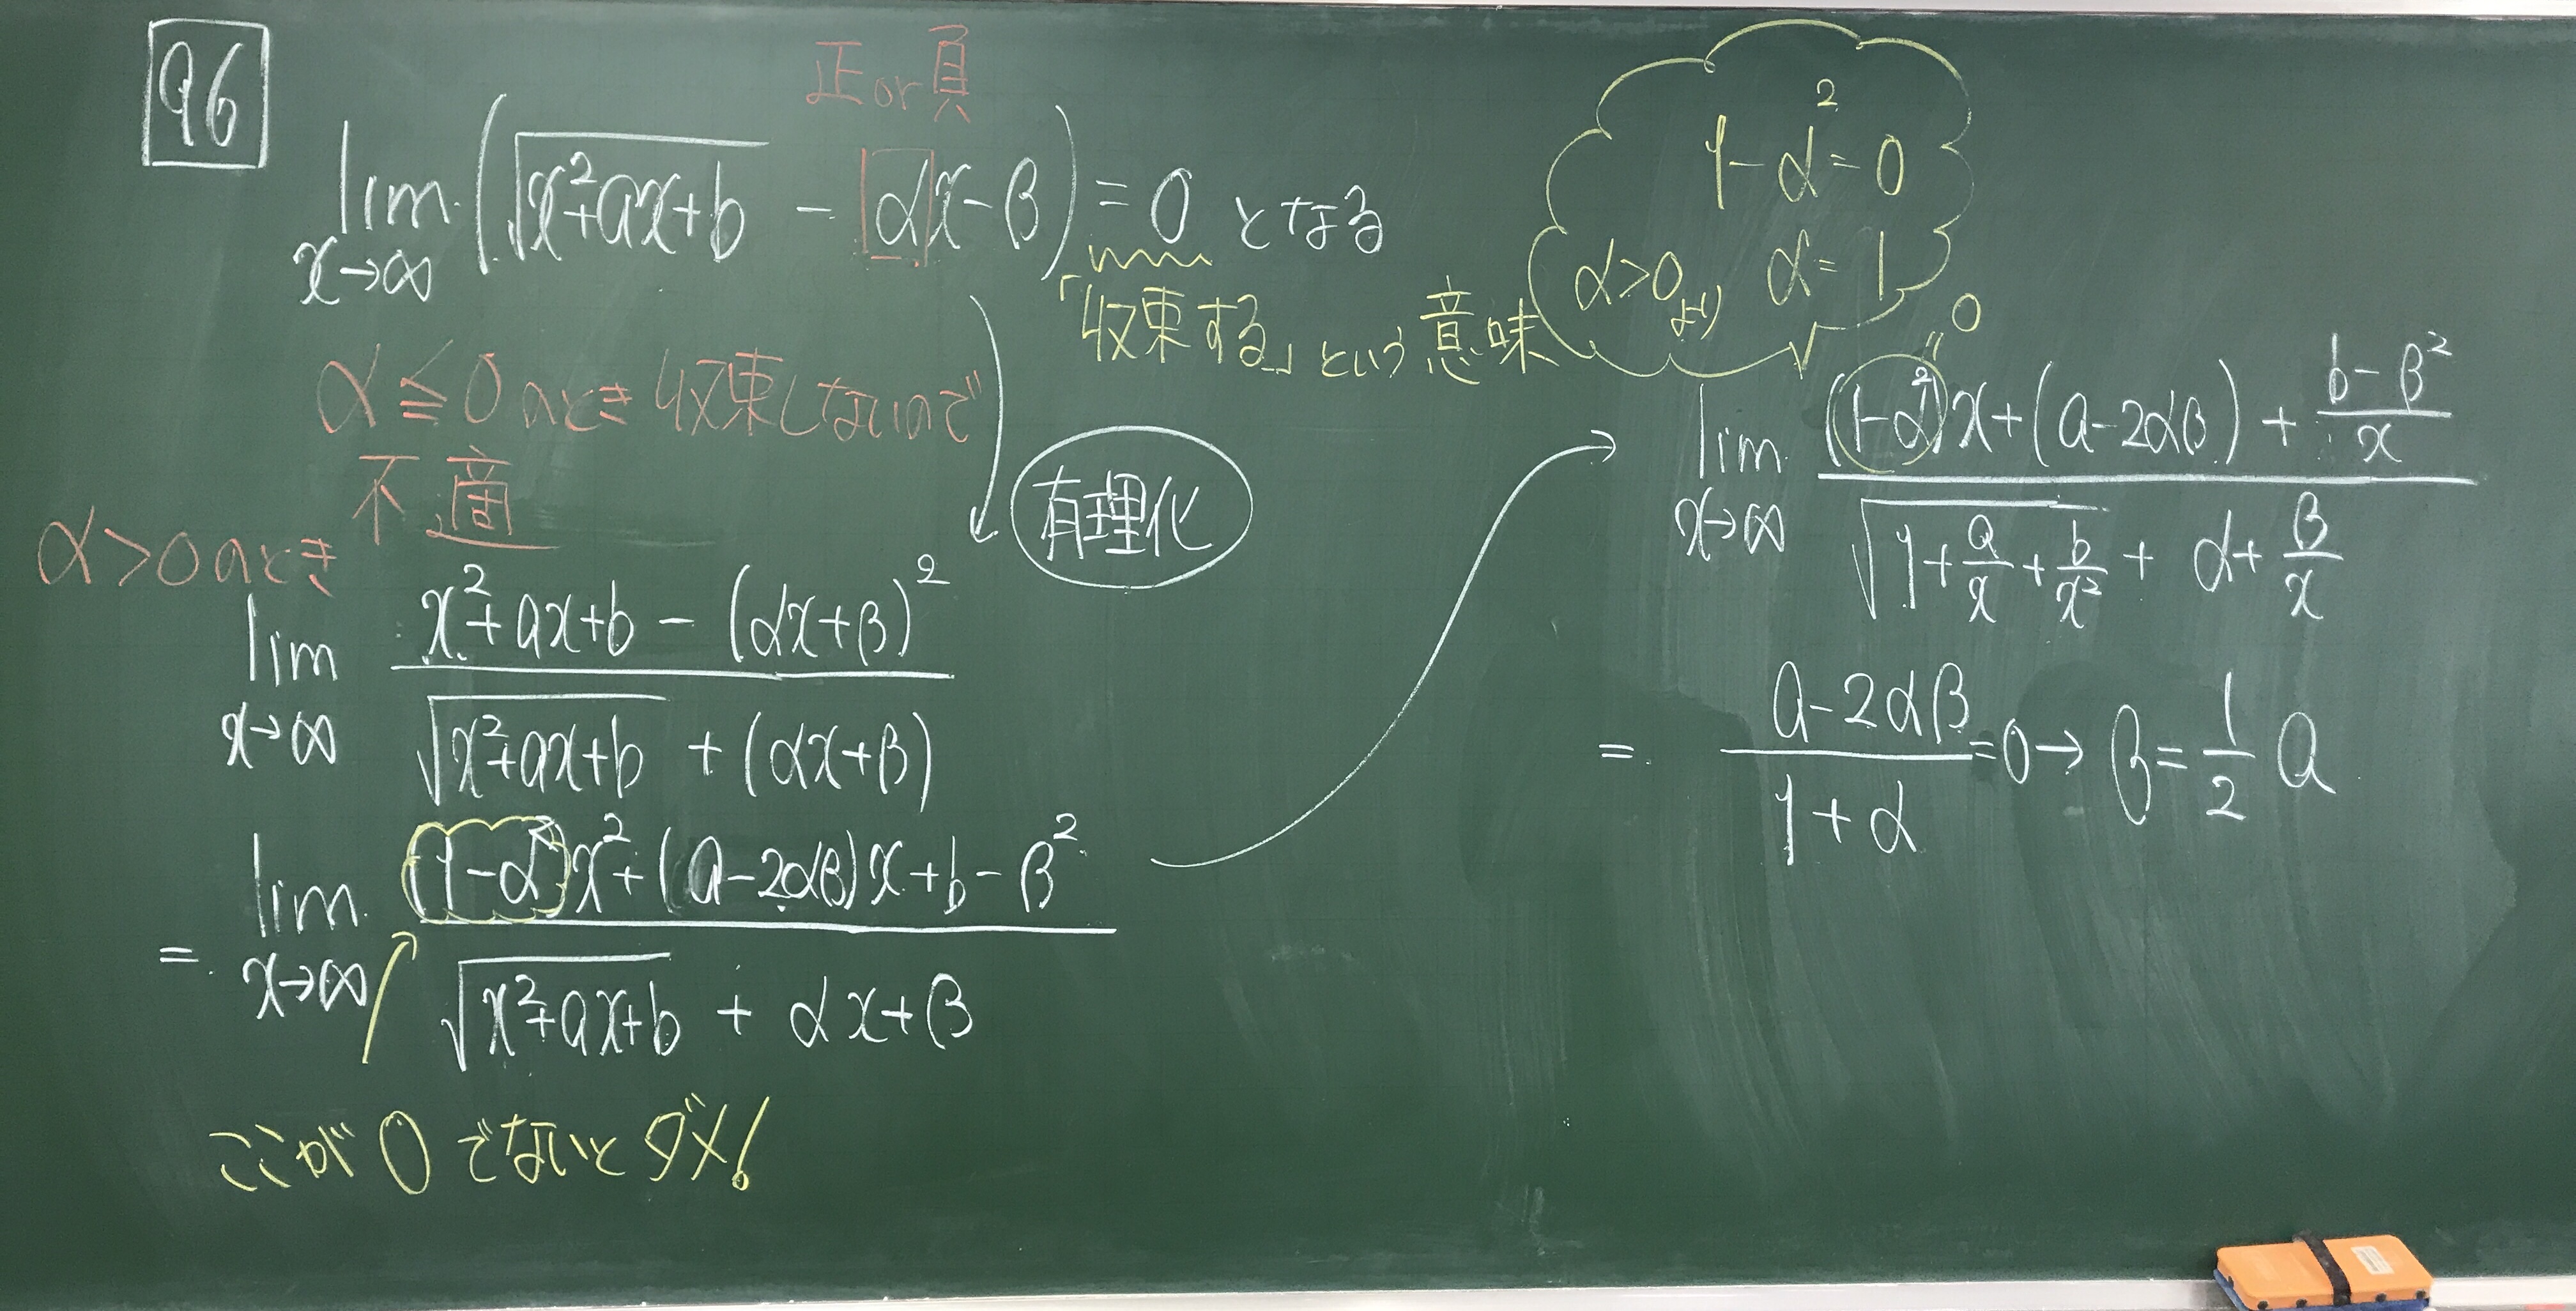 96
正or負
lim x→∞ (√(x²+ax+b) - αx-β) = 0 となる
「収束する」という意味
α≦0のとき収束しないので
不適
有理化
α>0のとき
lim x→∞ (x²+ax+b - (αx+β)²) / (√(x²+ax+b) + (αx+β))
= lim x→∞ ((1-α²)x²+(a-2αβ)x+b-β²) / (√(x²+ax+b) + αx+β)
ここが0でないとダメ!
1-α²=0
α>0より α=1
0
lim x→∞ ((1-α²)x+(a-2αβ)+(b-β²)/x) / (√(1+a/x+b/x²) + α+β/x)
= (a-2αβ)/(1+α) =0→ β=1/2 a